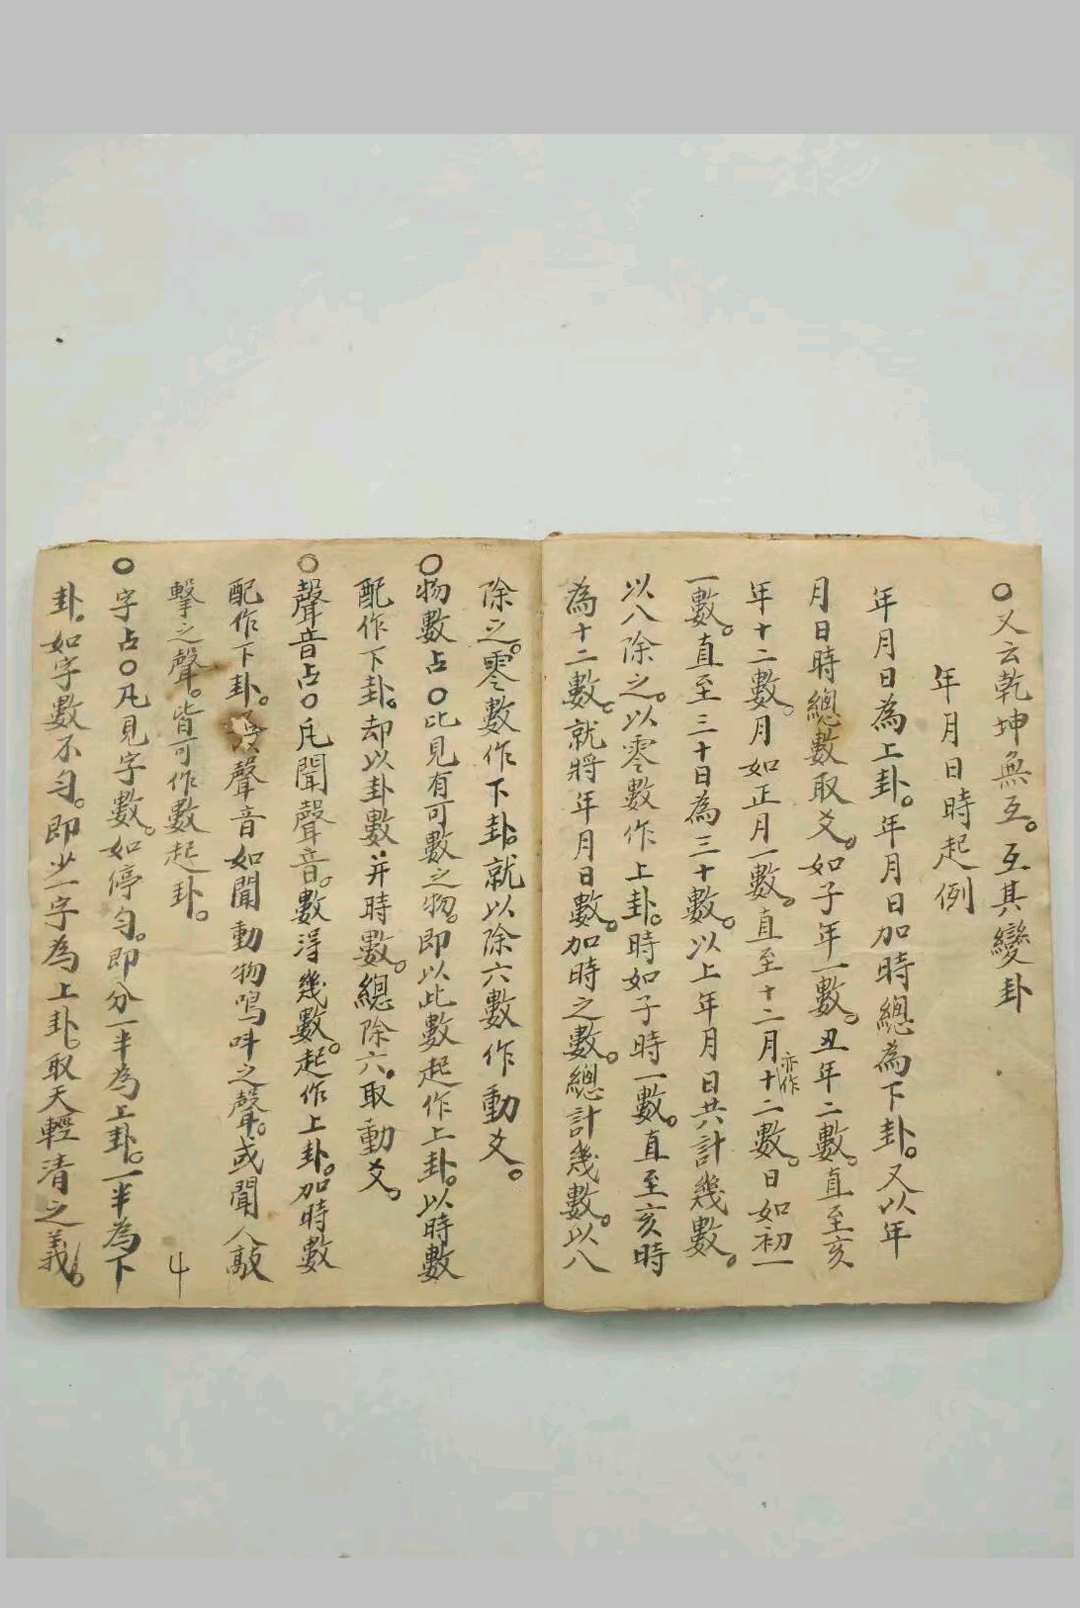 ○又云乾坤無互。互其變卦
年月日時起例
年月日為上卦。年月日加時總為下卦。又以年
月日時總數取爻。如子年一數。丑年二數。直至亥
年十二數。月如正月一數。直至十二月亦作十二數。日如初一
一數。直至三十日為三十數。以上年月日共計幾數。
以八除之。以零數作上卦。時如子時一數。直至亥時
為十二數。就將年月日數。加時之數。總計幾數。以八
除之。零數作下卦。就以除六數作動爻。
○物數占○比見有可數之物。即以此數起作上卦。以時數
配作下卦。却以卦數并時數。總除六。取動爻。
○聲音占○凡聞聲音。數得幾數。起作上卦。加時數
配作下卦。聲音如聞動物鳴呌之聲。或聞人敲
擊之聲。皆可作數起卦。
4
○字占○凡見字數。如停勻。即分一半為上卦。一半為下
卦。如字數不勻。即少一字為上卦。取天輕清之義。